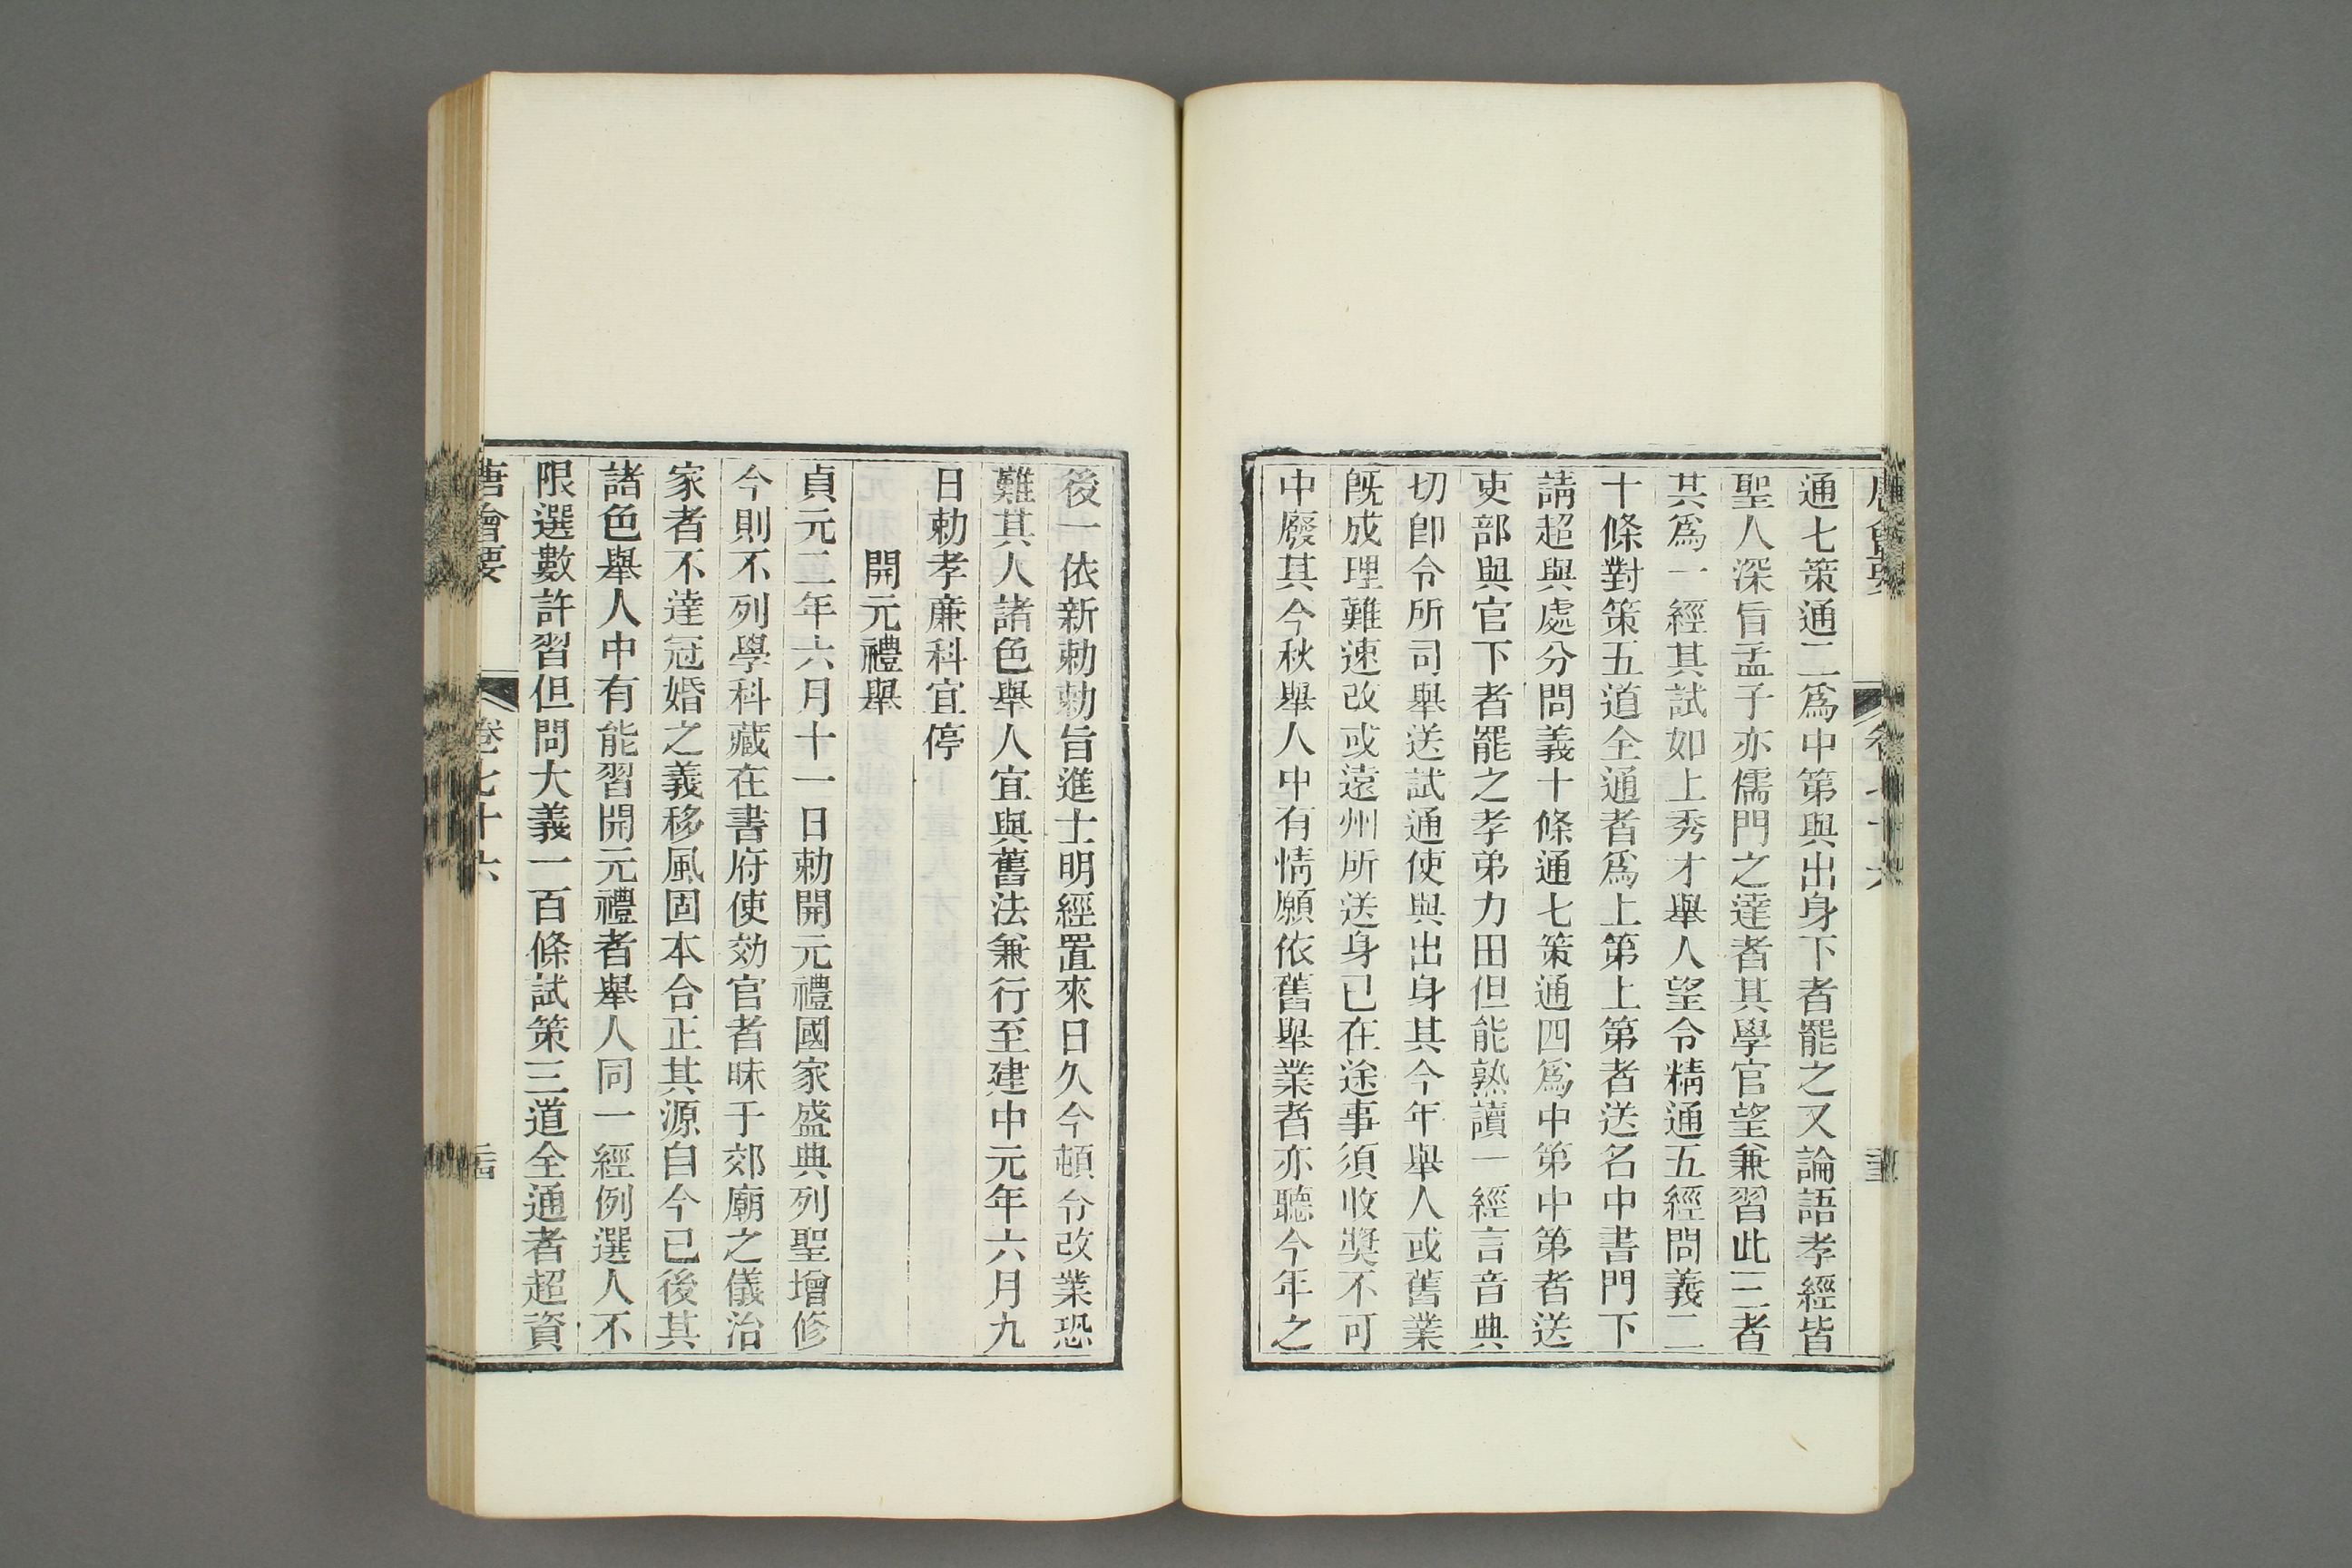 唐會要 卷七十六
通七策通二爲中第與出身下者罷之又論語孝經皆
聖人深旨孟子亦儒門之達者其學官望兼習此三者
共爲一經其試如上秀才舉人望令精通五經問義二
十條對策五道全通者爲上第上第者送名中書門下
請超與處分問義十條通七策通四爲中第中第者送
吏部與官下者罷之孝弟力田但能熟讀一經言音典
切卽令所司舉送試通使與出身其今年舉人或舊業
旣成理難速改或遠州所送身已在途事須收奬不可
中廢其今秋舉人中有情願依舊舉業者亦聽今年之
後一依新勅勅旨進士明經置來日久今頓令改業恐
難其人諸色舉人宜與舊法兼行至建中元年六月九
日勅孝廉科宜停
開元禮舉
貞元二年六月十一日勅開元禮國家盛典列聖增修
今則不列學科藏在書府使効官者昧于郊廟之儀治
家者不達冠婚之義移風固本合正其源自今已後其
諸色舉人中有能習開元禮者舉人同一經例選人不
限選數許習但問大義一百條試策三道全通者超資
唐會要 卷七十六